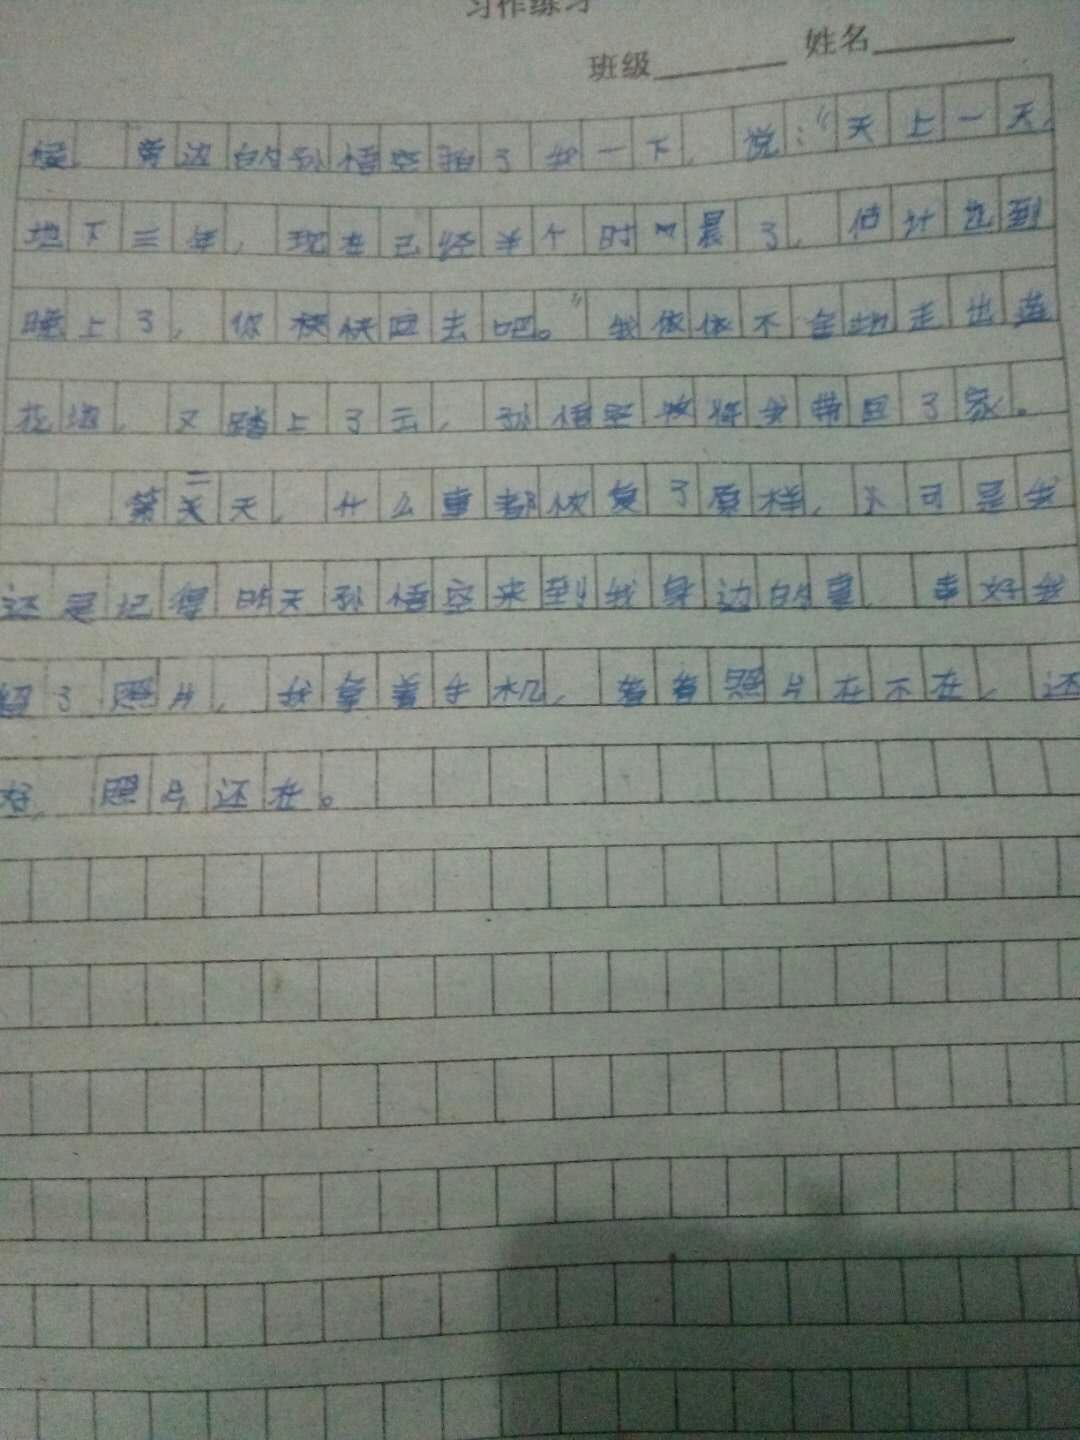 习作练习
班级 姓名
旁边的孙悟空拍了我一下,说:“天上一天,
地下三年,现在已经半个时晨了,估计迟到
晚上了,你快快回去吧。”我依依不舍地走出莲
花池,又踏上了云,孙悟空将我带回了家。
第二天,什么事都恢复了原样,可是我
还是记得昨天孙悟空来到我身边的事,幸好我
了照片,我拿着手机,看看照片在不在,还
好,照片还在。